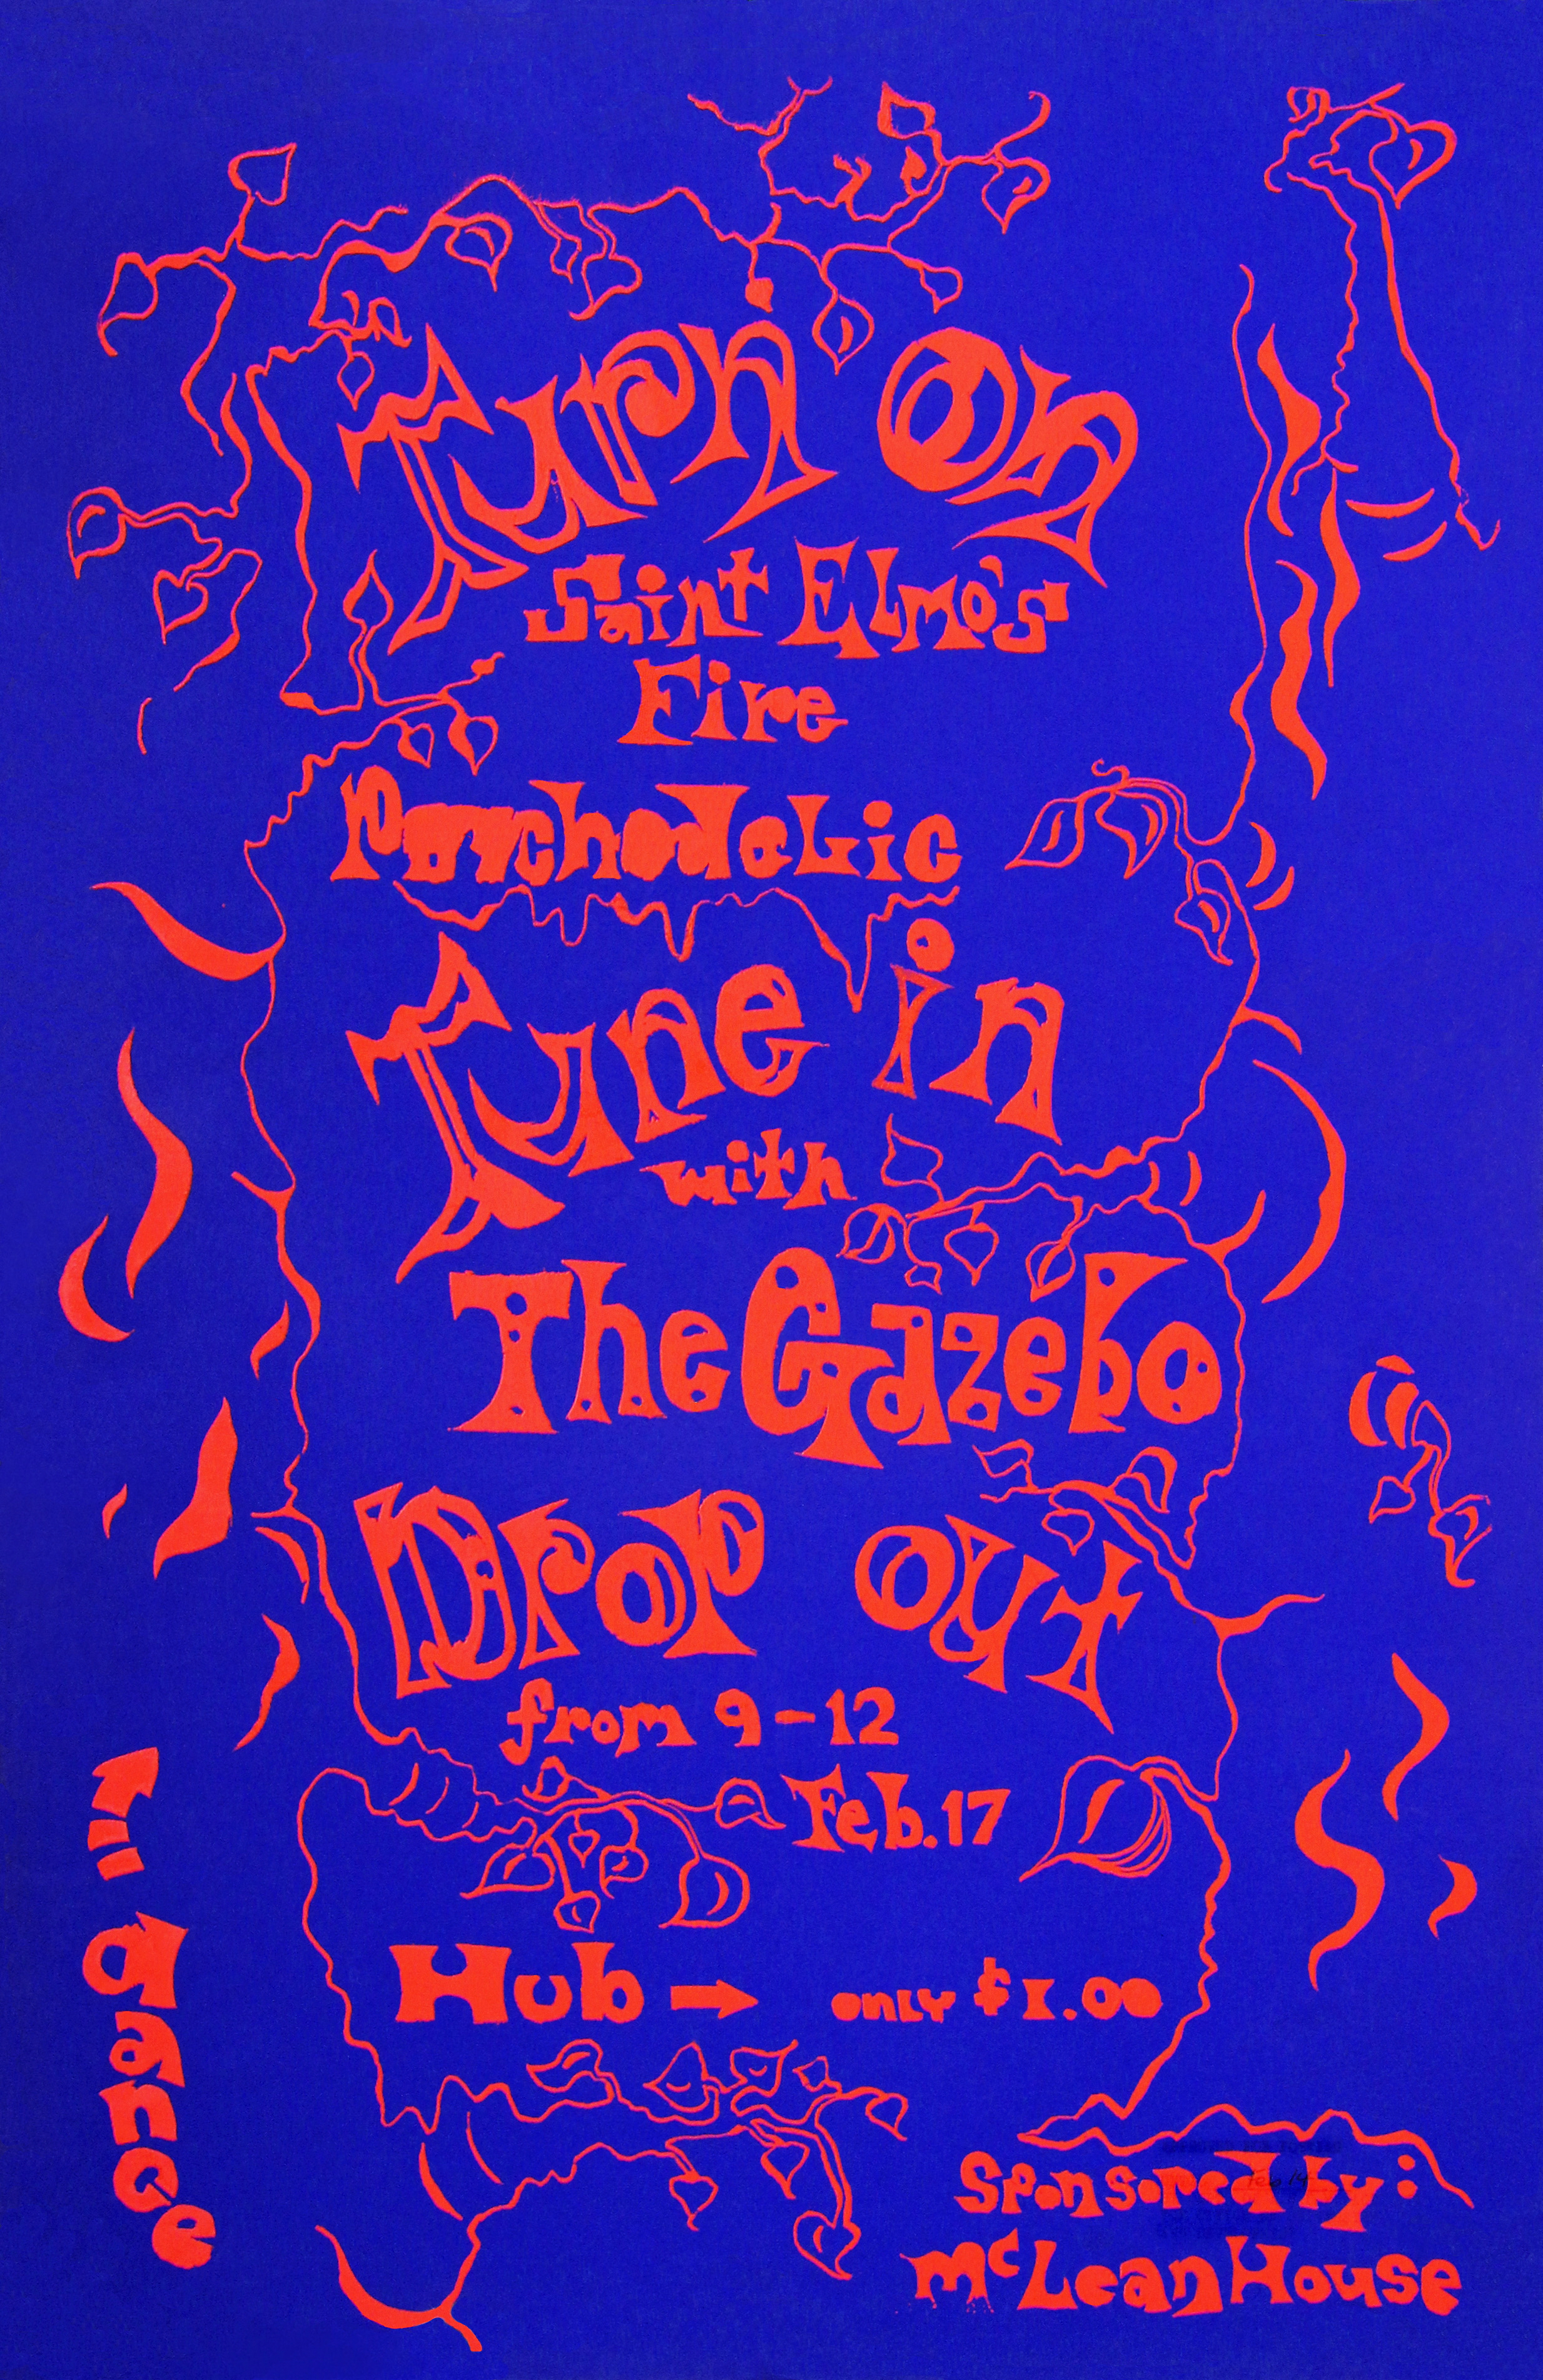 Turn On
Saint Elmo's
Fire
Psychodelic
Tune in
with
The Gazebo
Drop out
from 9-12
Feb. 17
Hub → only $1.00
dance
Sponsored by:
McLean House